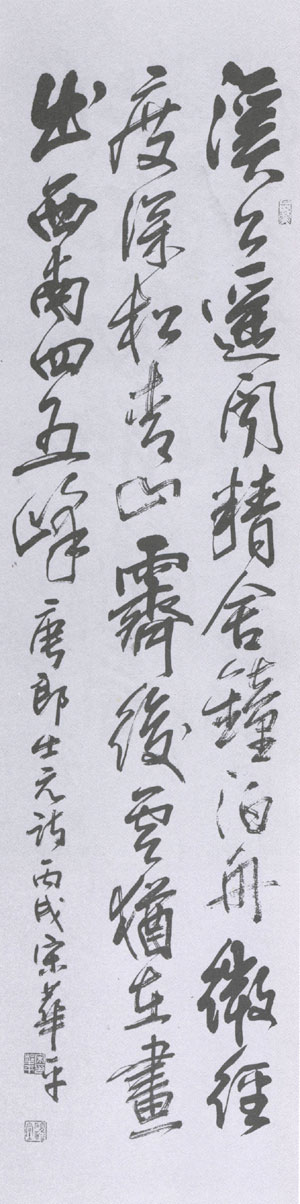 溪上遙聞精舍鐘泊舟微徑
度深松青山霽後雲猶在畫
出西南四五峰 唐郎士元詩丙戌宋華平